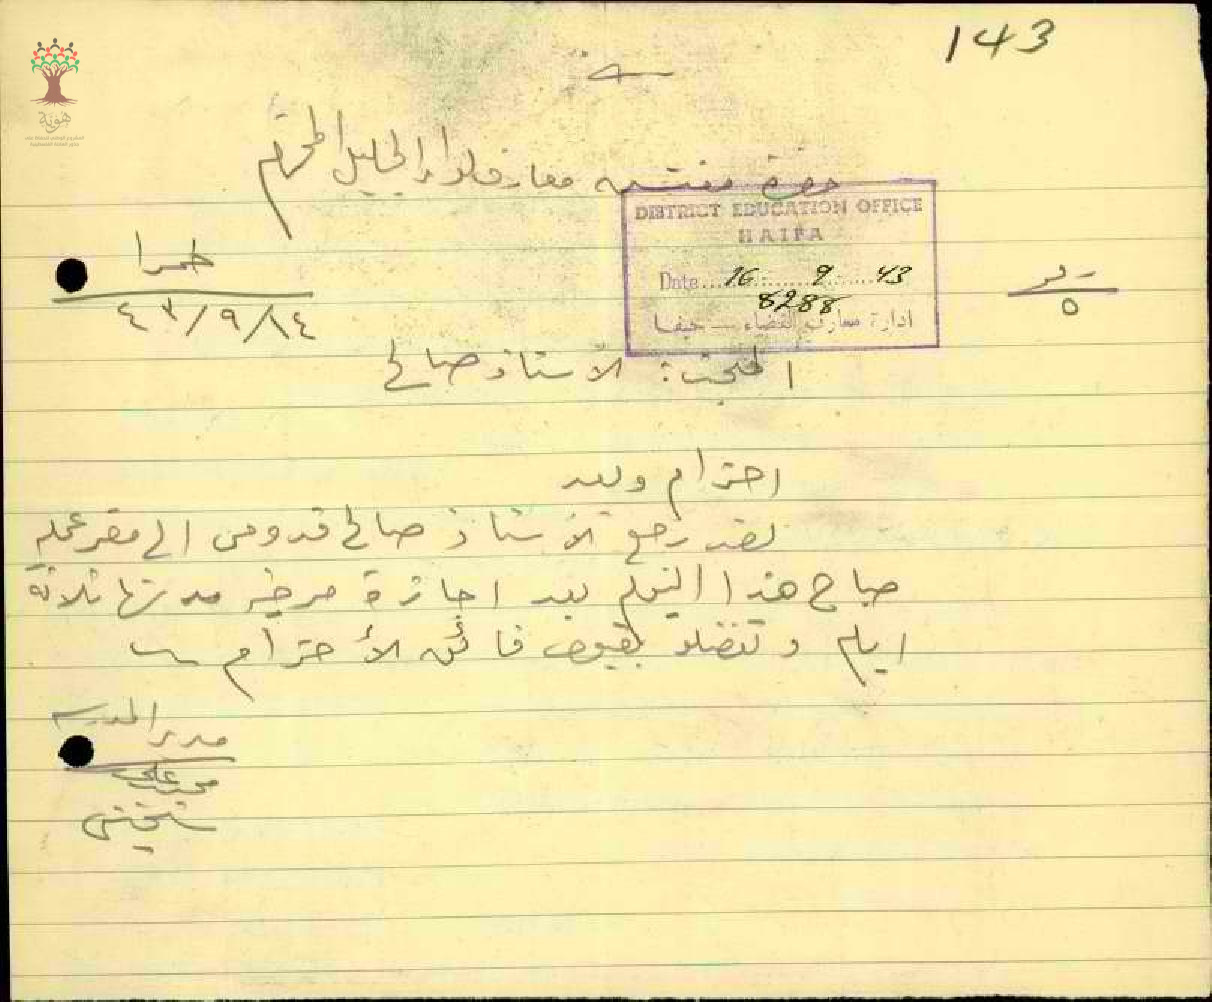 143
هوية
حضرة مفتش معارف لواء الجليل المحترم
DISTRICT EDUCATION OFFICE
HAIFA
Date... 16 ... 9 ... 43
8288
ادارة معارف القضاء — حيفا
طمرا
٤٣/٩/١٤
٥
المبحث: الاستاذ صالح
احترام وبعد
لقد رجع الاستاذ صالح قدومي الى مقر عمله
صباح هذا اليوم بعد اجازة مرضيه مدتها ثلاثة
ايام وتفضلو بقبول فائق الأحترام
مدير المدرسه
محمد علي